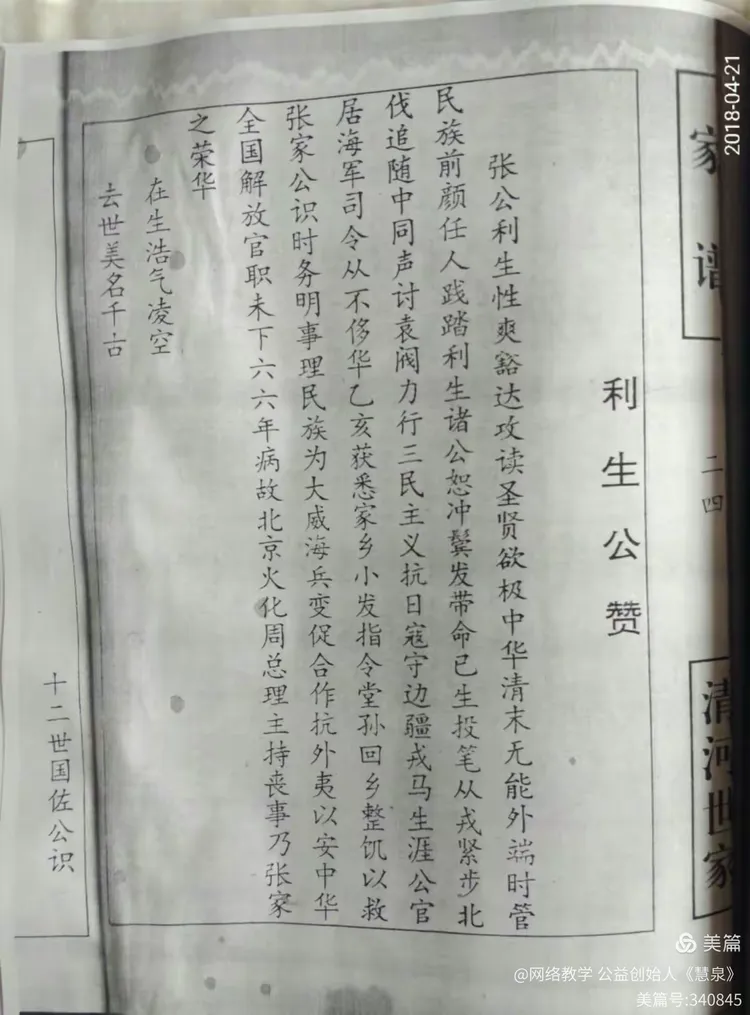 2018-04-21
家谱
二四
清河世家
利生公赞
张公利生性爽豁达攻读圣贤欲极中华清末无能外端时管
民族前颜任人践踏利生诸公恕冲鬓发带命已生投笔从戎紧步北
伐追随中同声讨袁阀力行三民主义抗日寇守边疆戎马生涯公官
居海军司令从不侈华乙亥获悉家乡小发指令堂孙回乡整饥以救
张家公识时务明事理民族为大威海兵变促合作抗外夷以安中华
全国解放官职未下六六年病故北京火化周总理主持丧事乃张家
之荣华
在生浩气凌空
去世美名千古
十二世国佐公识
美篇
@网络教学 公益创始人《慧泉》
美篇号:340845